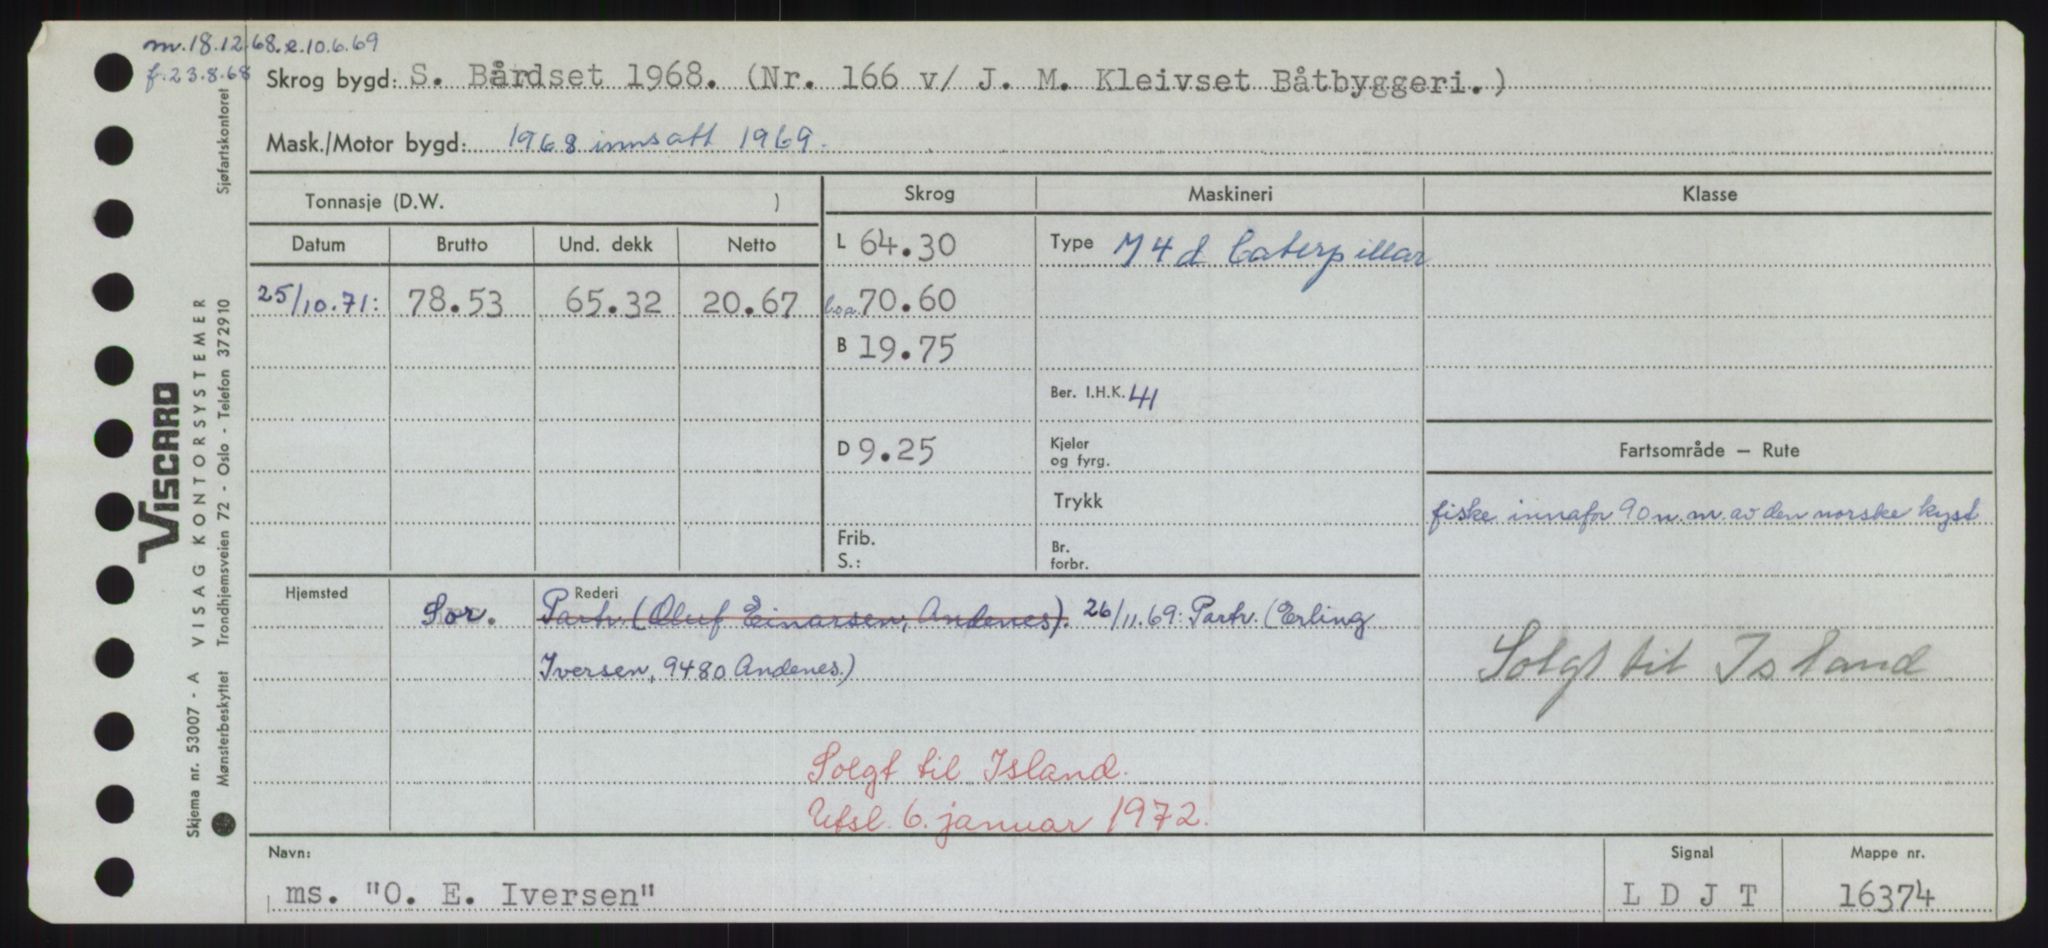 m.18.12.68.e.10.6.69
f.23.8.68
Skrog bygd: S. Bårdset 1968. (Nr. 166 v/ J. M. Kleivset Båtbyggeri.)
Mask./Motor bygd: 1968 innsatt 1969.
Tonnasje (D.W. )
Skrog
Maskineri
Klasse
Datum
Brutto
Und. dekk
Netto
L 64.30
Type M4d Caterpillar
25/10.71:
78.53
65.32
20.67
loa. 70.60
B 19.75
Ber. I.H.K. 41
D 9.25
Kjeler
og fyrg.
Fartsområde — Rute
Trykk
fiske innafor 90 n.m. av den norske kyst
Frib.
S.:
Br.
forbr.
Hjemsted
Sor.
Rederi
Partr. (Oluf Einarsen, Andenes). 26/11.69: Partr. (Erling
Iversen, 9480 Andenes.)
Solgt til Island
Solgt til Island.
Utsl. 6. januar 1972.
Navn:
ms. "O. E. Iversen"
Signal
L D J T
Mappe nr.
16374
VISCARD
VISAG KONTORSYSTEMER
Skjema nr. 53007 - A
Sjøfartskontoret
Trondhjemsveien 72 - Oslo - Telefon 372910
Mønsterbeskyttet